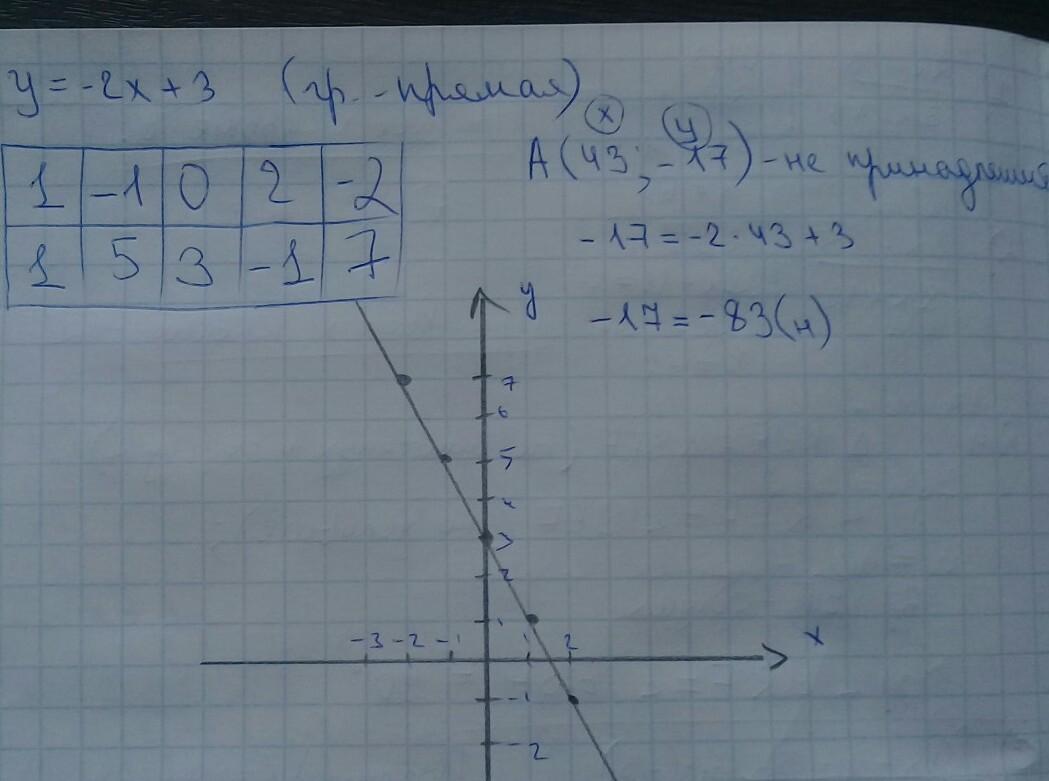 y = -2x + 3 (гр. - прямая)
x y
A(43; -17) - не принадлежит
1 -1 0 2 -2
1 5 3 -1 7
-17 = -2 · 43 + 3
-17 = -83 (н)
y
7
6
5
4
3
2
1
-3 -2 -1 1 2 x
-1
-2